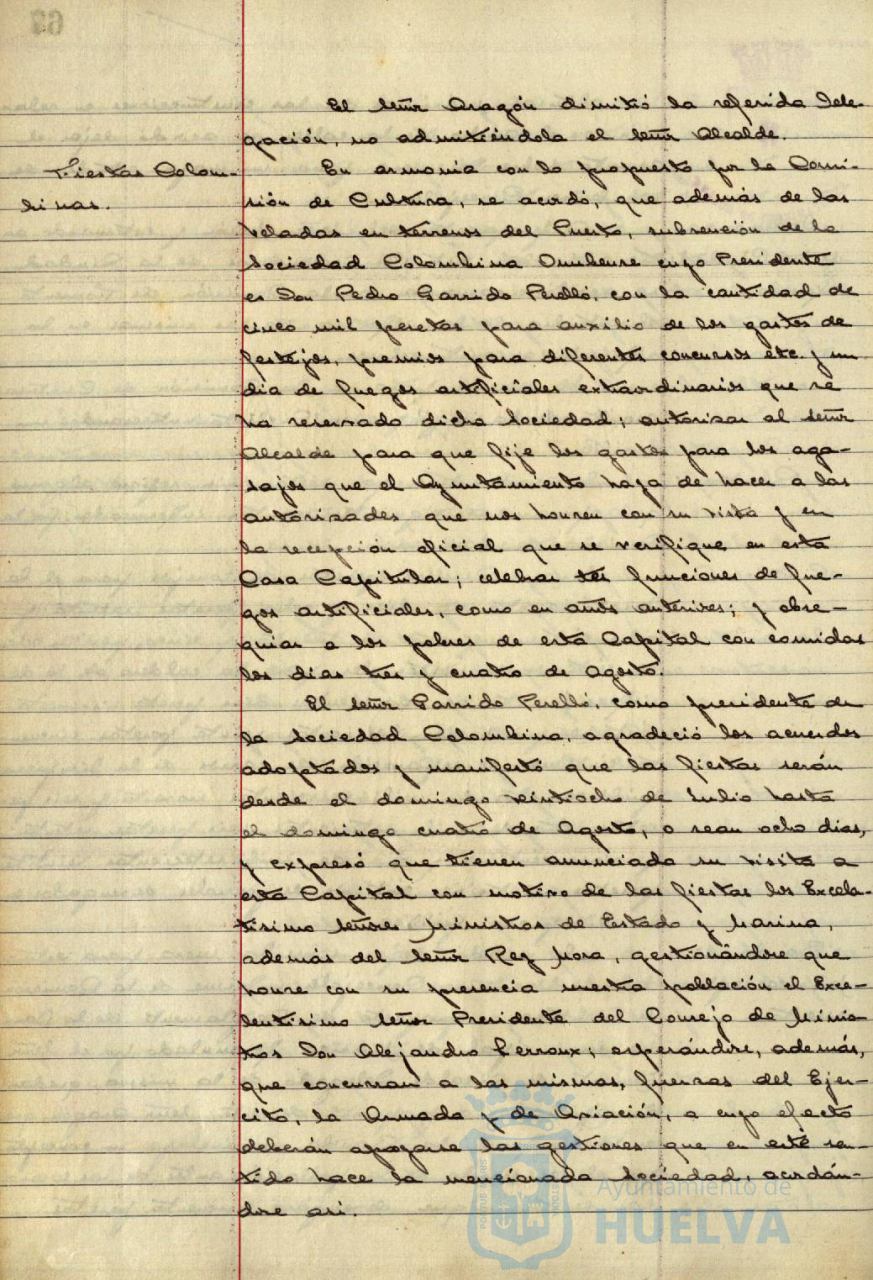 El señor Aragón dimitió la referida Dele-
gación, no admitiéndola el señor Alcalde.
Fiestas Colom-
binas.
En armonia con lo propuesto por la Comi-
sión de Cultura, se acordó, que además de las
Veladas en terrenos del Puerto, subvención de la
Sociedad Colombina Onubense cuyo Presidente
es Don Pedro Garrido Perelló, con la cantidad de
cinco mil pesetas para auxilio de los gastos de
festejos, premios para diferentes concursos etc. y un
dia de fuegos artificiales extraordinarios que se
ha reservado dicha Sociedad; autorizar al señor
Alcalde para que fije los gastos para los aga-
sajos que el Ayuntamiento haya de hacer a las
autoridades que nos honren con su visita y en
la recepción oficial que se verifique en esta
Casa Capitular; celebrar tres funciones de fue-
gos artificiales, como en años anteriores; y obse-
quiar a los pobres de esta Capital con comidas
los dias tres y cuatro de Agosto.
El señor Garrido Perelló, como presidente de
la Sociedad Colombina, agradeció los acuerdos
adoptados y manifestó que las fiestas serán
desde el domingo veintiocho de Julio hasta
el domingo cuatro de Agosto, o sean ocho dias,
y expresó que tienen anunciada su visita a
esta Capital con motivo de las fiestas los Excelen-
tisimo señores Ministros de Estado y Marina,
además del señor Rey Mora, gestionándose que
honre con su presencia nuestra población el Exce-
lentisimo señor Presidente del Consejo de Minis-
tros Don Alejandro Lerroux; esperándose, además,
que concurran a las mismas, fuerzas del Ejer-
cito, la Armada y de Aviación, a cuyo efecto
deberán apoyarse las gestiones que en este sen-
tido hace la mencionada Sociedad, acordán-
dose asi.
Ayuntamiento de
HUELVA